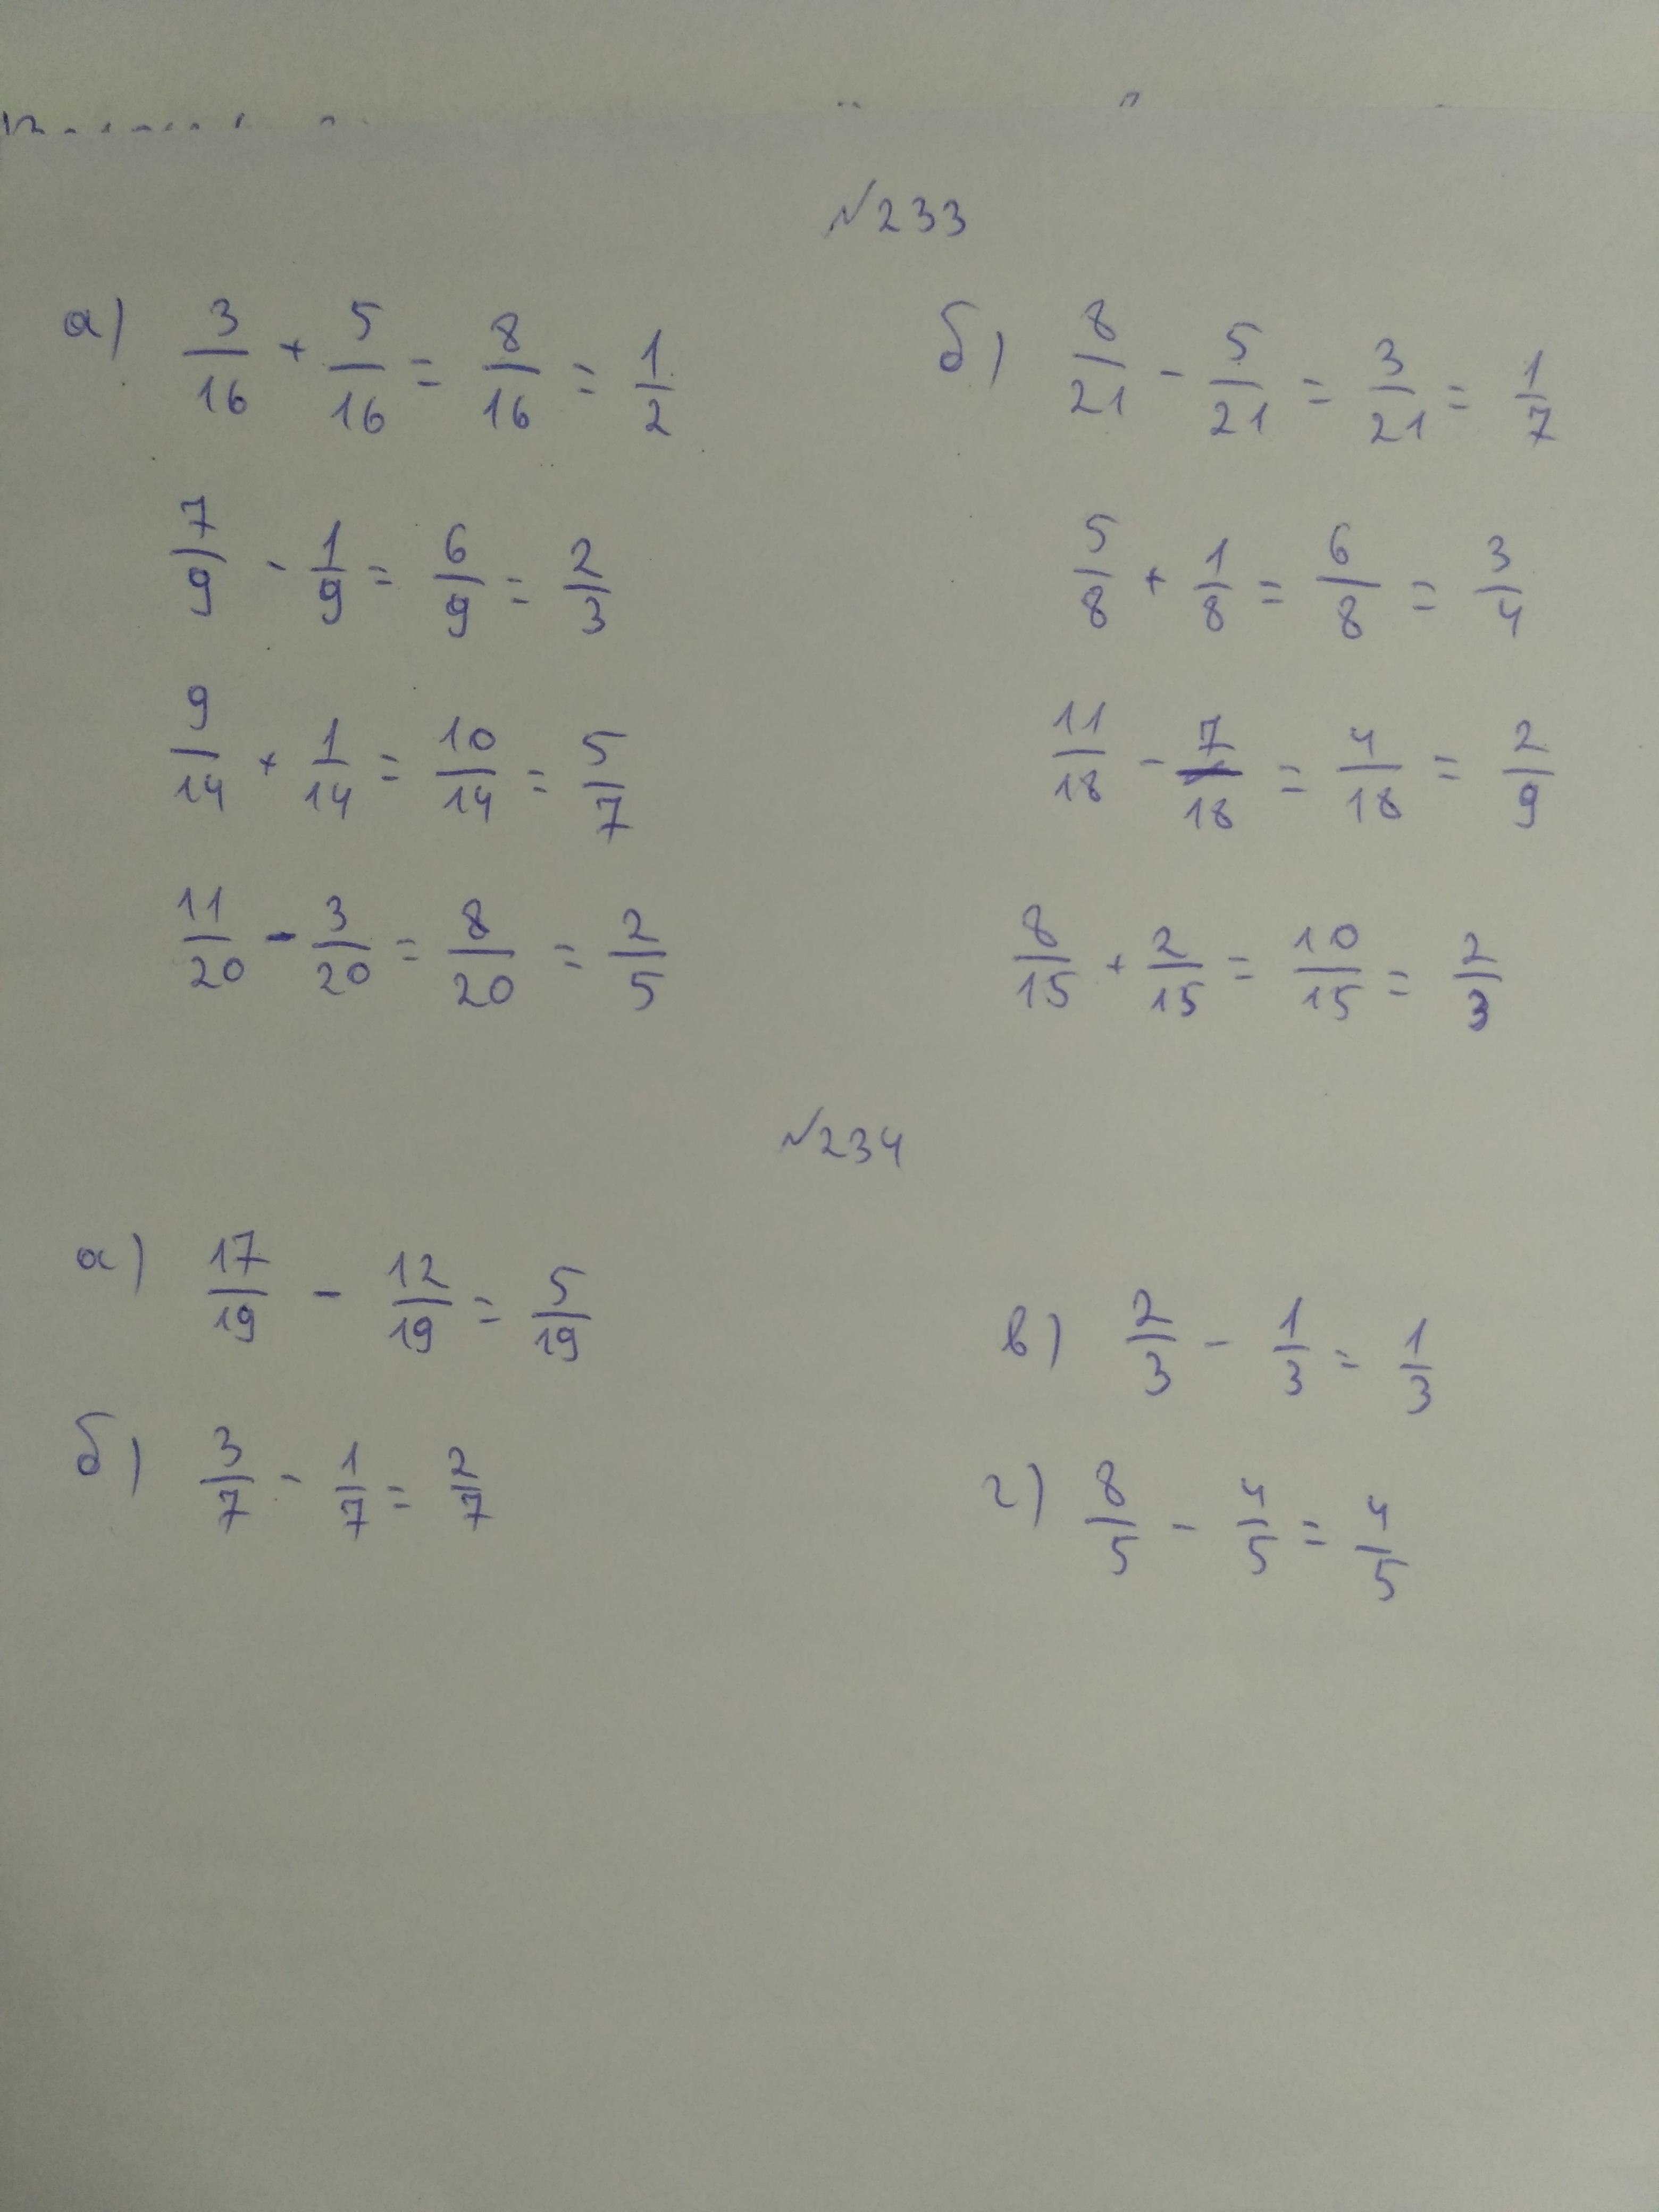 №233
а) 3/16 + 5/16 = 8/16 = 1/2
7/9 - 1/9 = 6/9 = 2/3
9/14 + 1/14 = 10/14 = 5/7
11/20 - 3/20 = 8/20 = 2/5
б) 8/21 - 5/21 = 3/21 = 1/7
5/8 + 1/8 = 6/8 = 3/4
11/18 - 7/18 = 4/18 = 2/9
8/15 + 2/15 = 10/15 = 2/3
№234
а) 17/19 - 12/19 = 5/19
б) 3/7 - 1/7 = 2/7
в) 2/3 - 1/3 = 1/3
г) 8/5 - 4/5 = 4/5